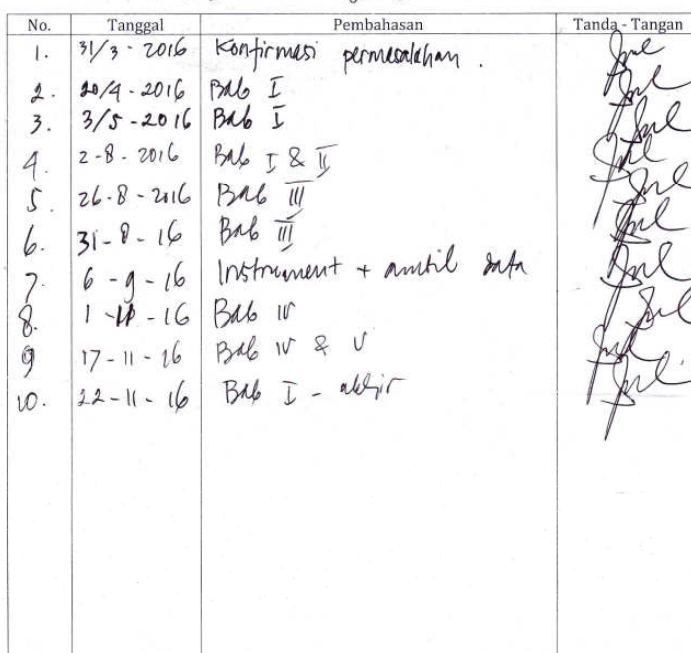 No. Tanggal Pembahasan Tanda - Tangan
1. 31/3 - 2016 Konfirmasi permasalahan .
2. 20/4 - 2016 Bab I
3. 3/5 - 2016 Bab I
4. 2 - 8 - 2016 Bab I & II
5. 26 - 8 - 2016 Bab III
6. 31 - 8 - 16 Bab III
7. 6 - 9 - 16 Instrument + ambil data
8. 1 - 11 - 16 Bab IV
9 17 - 11 - 16 Bab IV & V
10. 22 - 11 - 16 Bab I - akhir